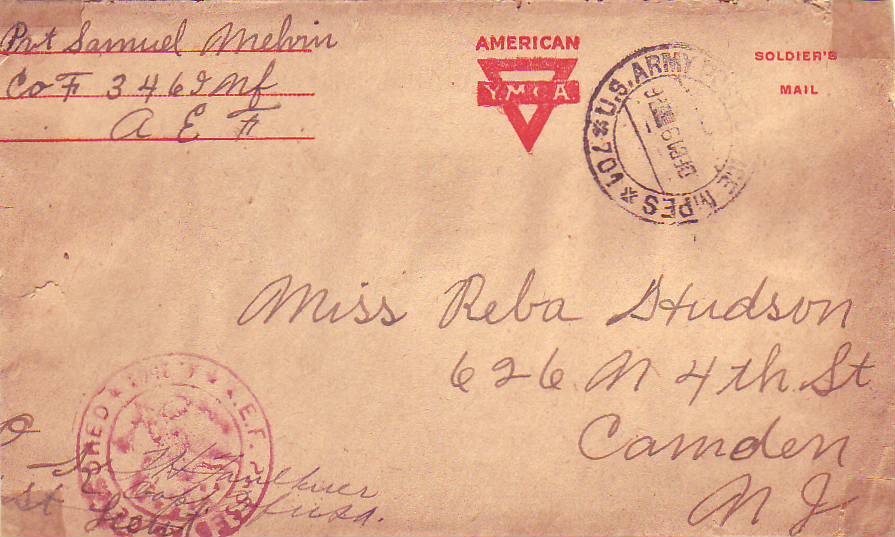 Pvt Samuel Melvin
Co F 346 Inf
A E F
AMERICAN
Y.M.C.A.
SOLDIER'S
MAIL
U.S. ARMY M.P.E.S. 701
Miss Reba Hudson
626 N 4th St
Camden
N J
A.E.F.
Faulkner